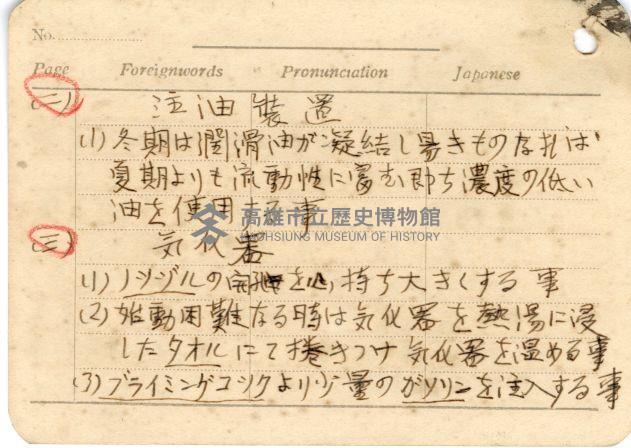 No.
Page Foreignwords Pronunciation Japanese
(二) 注油装置
(1) 冬期は潤滑油が凝結し易きものなれば
夏期よりも流動性に富む即ち濃度の低い
油を使用する事
高雄市立歷史博物館
KAOHSIUNG MUSEUM OF HISTORY
(三) 気化器
(1) ノヅヅルの を心持ち大きくする事
(2) 始動困難なる時は気化器を熱湯に浸
したタオルにて捲きつけ気化器を温める事
(3) プライミングコックより少量のガソリンを注入する事